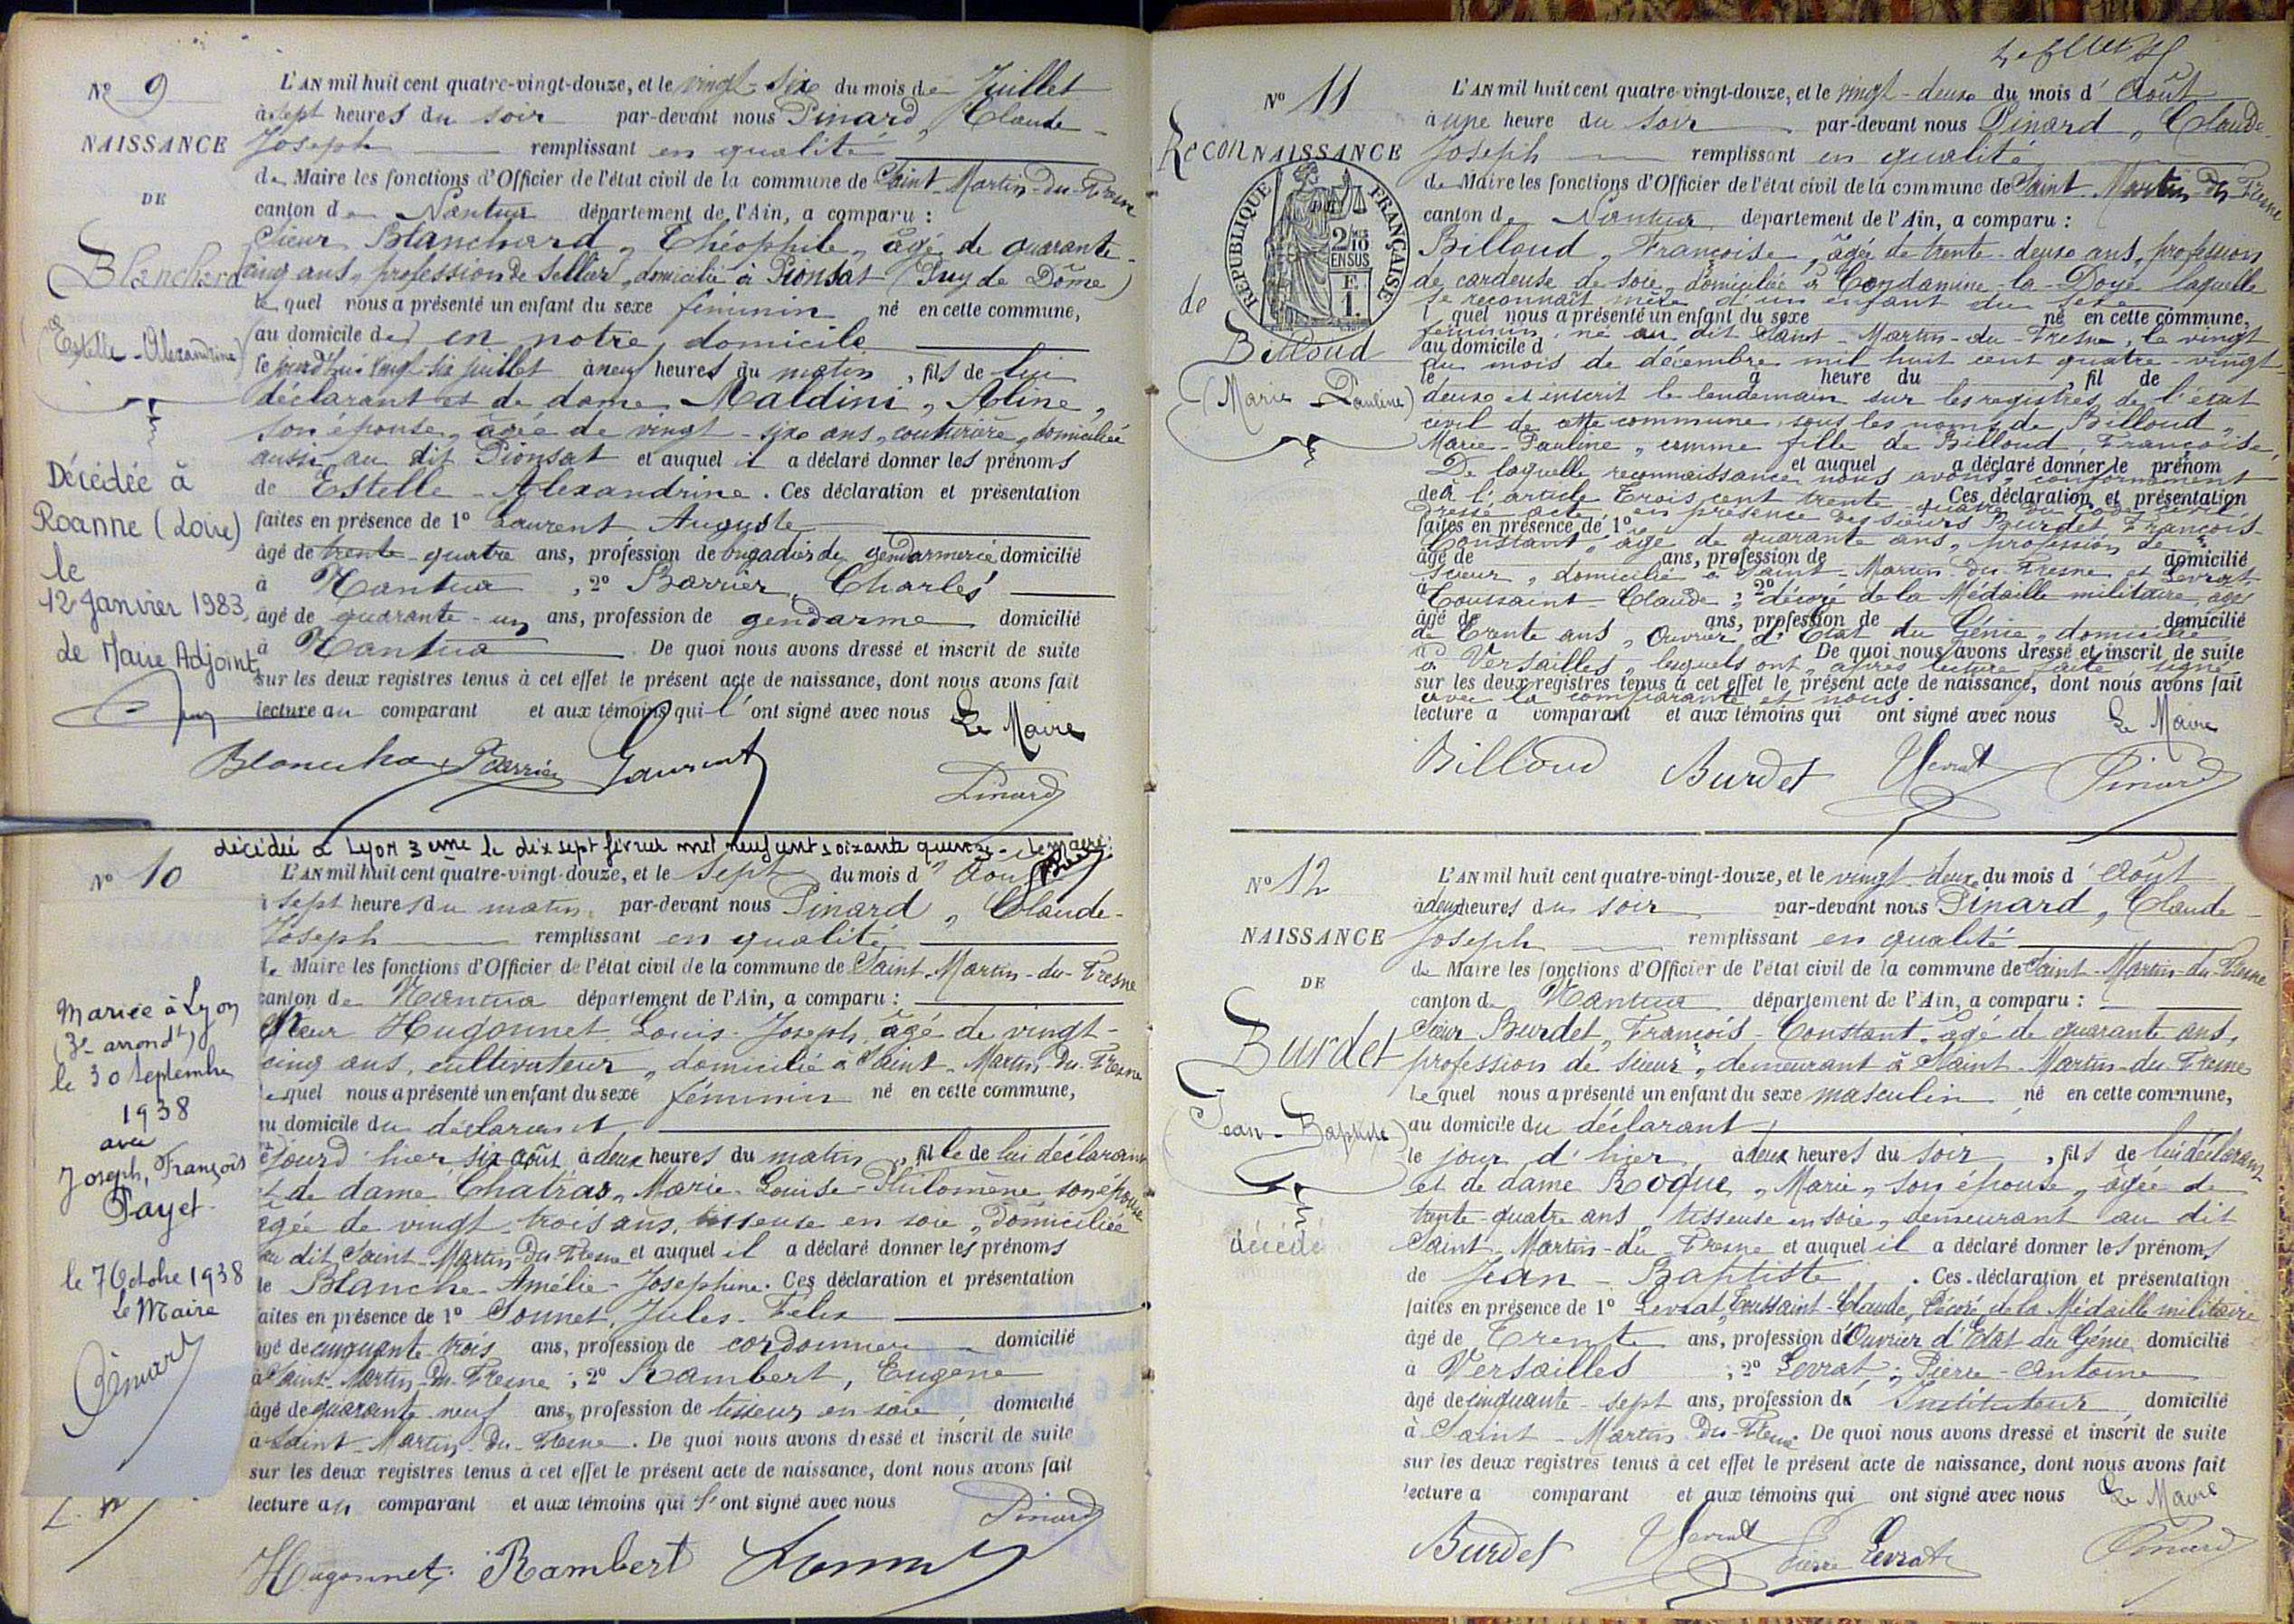 Nº 9
NAISSANCE
DE
Blanchard
(Estelle-Alexandrine)
Décédée à
Roanne (Loire)
le
12 Janvier 1983,
Le Maire Adjoint,
L'AN mil huit cent quatre-vingt-douze, et le vingt-six du mois de Juillet
à sept heures du soir par-devant nous Pinard, Claude-
Joseph remplissant en qualité
de Maire les fonctions d'Officier de l'état civil de la commune de Saint-Martin-du-Fresne
canton de Nantua département de l'Ain, a comparu :
Sieur Blanchard, Théophile, âgé de quarante-
cinq ans, profession de Sellier, domicilié à Pionsat (Puy de Dôme)
lequel nous a présenté un enfant du sexe féminin né en cette commune,
(au domicile de) en notre domicile
le jourd'hui vingt-six juillet à neuf heures du matin, fils de lui
déclarant et de dame Maldini, Aline,
son épouse, âgée de vingt-six ans, couturière, domiciliée
aussi au dit Pionsat et auquel il a déclaré donner les prénoms
de Estelle-Alexandrine. Ces déclaration et présentation
faites en présence de 1º Laurent Auguste
âgé de trente-quatre ans, profession de brigadier de gendarmerie domicilié
à Nantua, 2º Barrier, Charles
âgé de quarante-un ans, profession de gendarme domicilié
à Nantua. De quoi nous avons dressé et inscrit de suite
sur les deux registres tenus à cet effet le présent acte de naissance, dont nous avons fait
lecture au comparant et aux témoins qui l'ont signé avec nous Le Maire
Blanchard Barrier Laurent Pinard
décédée à Lyon 3eme le dix sept février mil neuf cent soixante quinze - Le maire:
Nº 10
Mariée à Lyon
(3e arrondt)
le 30 Septembre
1938
avec
Joseph, François
Payet.
le 7 Octobre 1938
Le Maire
Pinard
L'AN mil huit cent quatre-vingt-douze, et le Sept du mois d'Août
à sept heures du matin par-devant nous Pinard, Claude-
Joseph remplissant en qualité
de Maire les fonctions d'Officier de l'état civil de la commune de Saint-Martin-du-Fresne
canton de Nantua département de l'Ain, a comparu :
Sieur Hugonnet Louis-Joseph, âgé de vingt-
cinq ans, cultivateur, domicilié à Saint-Martin-du-Fresne
lequel nous a présenté un enfant du sexe féminin né en cette commune,
au domicile du déclarant
le jourd'hier six août à deux heures du matin, fille de lui déclarant
et de dame Chatras, Marie-Louise-Philomène son épouse
âgée de vingt-trois ans, tisseuse en soie, domiciliée
au dit Saint-Martin-du-Fresne et auquel il a déclaré donner les prénoms
de Blanche-Amélie-Josephine. Ces déclaration et présentation
faites en présence de 1º Sonnet, Jules-Félix
âgé de cinquante trois ans, profession de cordonnier domicilié
à Saint-Martin-du-Fresne ; 2º Rambert, Eugène
âgé de quarante neuf ans, profession de tisseur en soie domicilié
à Saint-Martin-du-Fresne. De quoi nous avons dressé et inscrit de suite
sur les deux registres tenus à cet effet le présent acte de naissance, dont nous avons fait
lecture au comparant et aux témoins qui l'ont signé avec nous Pinard
Hugonnet Rambert
Nº 11
ReconNAISSANCE
RÉPUBLIQUE FRANÇAISE
2/10 EN SUS
F.
1.
de
Billoud
(Marie-Pauline)
L'AN mil huit cent quatre-vingt-douze, et le vingt-deux du mois d'Août
à une heure du soir par-devant nous Pinard, Claude-
Joseph remplissant en qualité
de Maire les fonctions d'Officier de l'état civil de la commune de Saint-Martin-du-Fresne
canton de Nantua département de l'Ain, a comparu :
Billoud, Françoise, âgée de trente-deux ans, profession
de cardeuse de soie, domiciliée à Condamine-la-Doye laquelle
se reconnaît mère d'un enfant du sexe
l quel nous a présenté un enfant du sexe né en cette commune,
féminin, né au dit Saint-Martin-du-Fresne, le vingt
au domicile d
du mois de décembre mil huit cent quatre-vingt-
le à heure du , fil de
deux et inscrit le lendemain sur les registres de l'état
civil de cette commune sous les noms de Billoud,
Marie-Pauline, comme fille de Billoud, Françoise,
et auquel a déclaré donner le prénom
De laquelle reconnaissance nous avons, conformément
de Ces déclaration et présentation
à l'article trois cent trente-quatre du code civil
dressé acte, en présence des sieurs Burdet, François-
faites en présence de 1º
Constant, âgé de quarante ans, profession de
âgé de ans, profession de domicilié
scieur, domicilié à Saint-Martin-du-Fresne et Levrat
à 2º
Toussaint-Claude, décoré de la Médaille militaire, âgé
âgé de ans, profession de domicilié
de Trente ans, Ouvrier d'Etat du Génie, domicilié
à De quoi nous avons dressé et inscrit de suite
à Versailles, lesquels ont, après lecture faite signé
sur les deux registres tenus à cet effet le présent acte de naissance, dont nous avons fait
avec la comparante et nous.
lecture a comparant et aux témoins qui ont signé avec nous Le Maire
Billoud Burdet Levrat Pinard
Nº 12
NAISSANCE
DE
Burdet
(Jean-Baptiste)
décédé
L'AN mil huit cent quatre-vingt-douze, et le vingt-deux du mois d'Août
à deux heures du soir par-devant nous Pinard, Claude-
Joseph remplissant en qualité
de Maire les fonctions d'Officier de l'état civil de la commune de Saint-Martin-du-Fresne
canton de Nantua département de l'Ain, a comparu :
Sieur Burdet, François-Constant, âgé de quarante ans,
profession de scieur, demeurant à Saint-Martin-du-Fresne
lequel nous a présenté un enfant du sexe masculin né en cette commune,
au domicile du déclarant
le jour d'hier à deux heures du soir, fils de lui déclarant
et de dame Roque, Marie, son épouse, âgée de
trente-quatre ans, tisseuse en soie, demeurant au dit
Saint-Martin-du-Fresne et auquel il a déclaré donner les prénoms
de Jean-Baptiste. Ces déclaration et présentation
faites en présence de 1º Levrat, Toussaint-Claude, Décoré de la Médaille militaire
âgé de Trente ans, profession d'Ouvrier d'Etat du Génie domicilié
à Versailles ; 2º Levrat, Pierre-Antoine
âgé de cinquante-sept ans, profession de Instituteur domicilié
à Saint-Martin-du-Fresne De quoi nous avons dressé et inscrit de suite
sur les deux registres tenus à cet effet le présent acte de naissance, dont nous avons fait
lecture a comparant et aux témoins qui ont signé avec nous Le Maire
Burdet Levrat Pierre Levrat Pinard